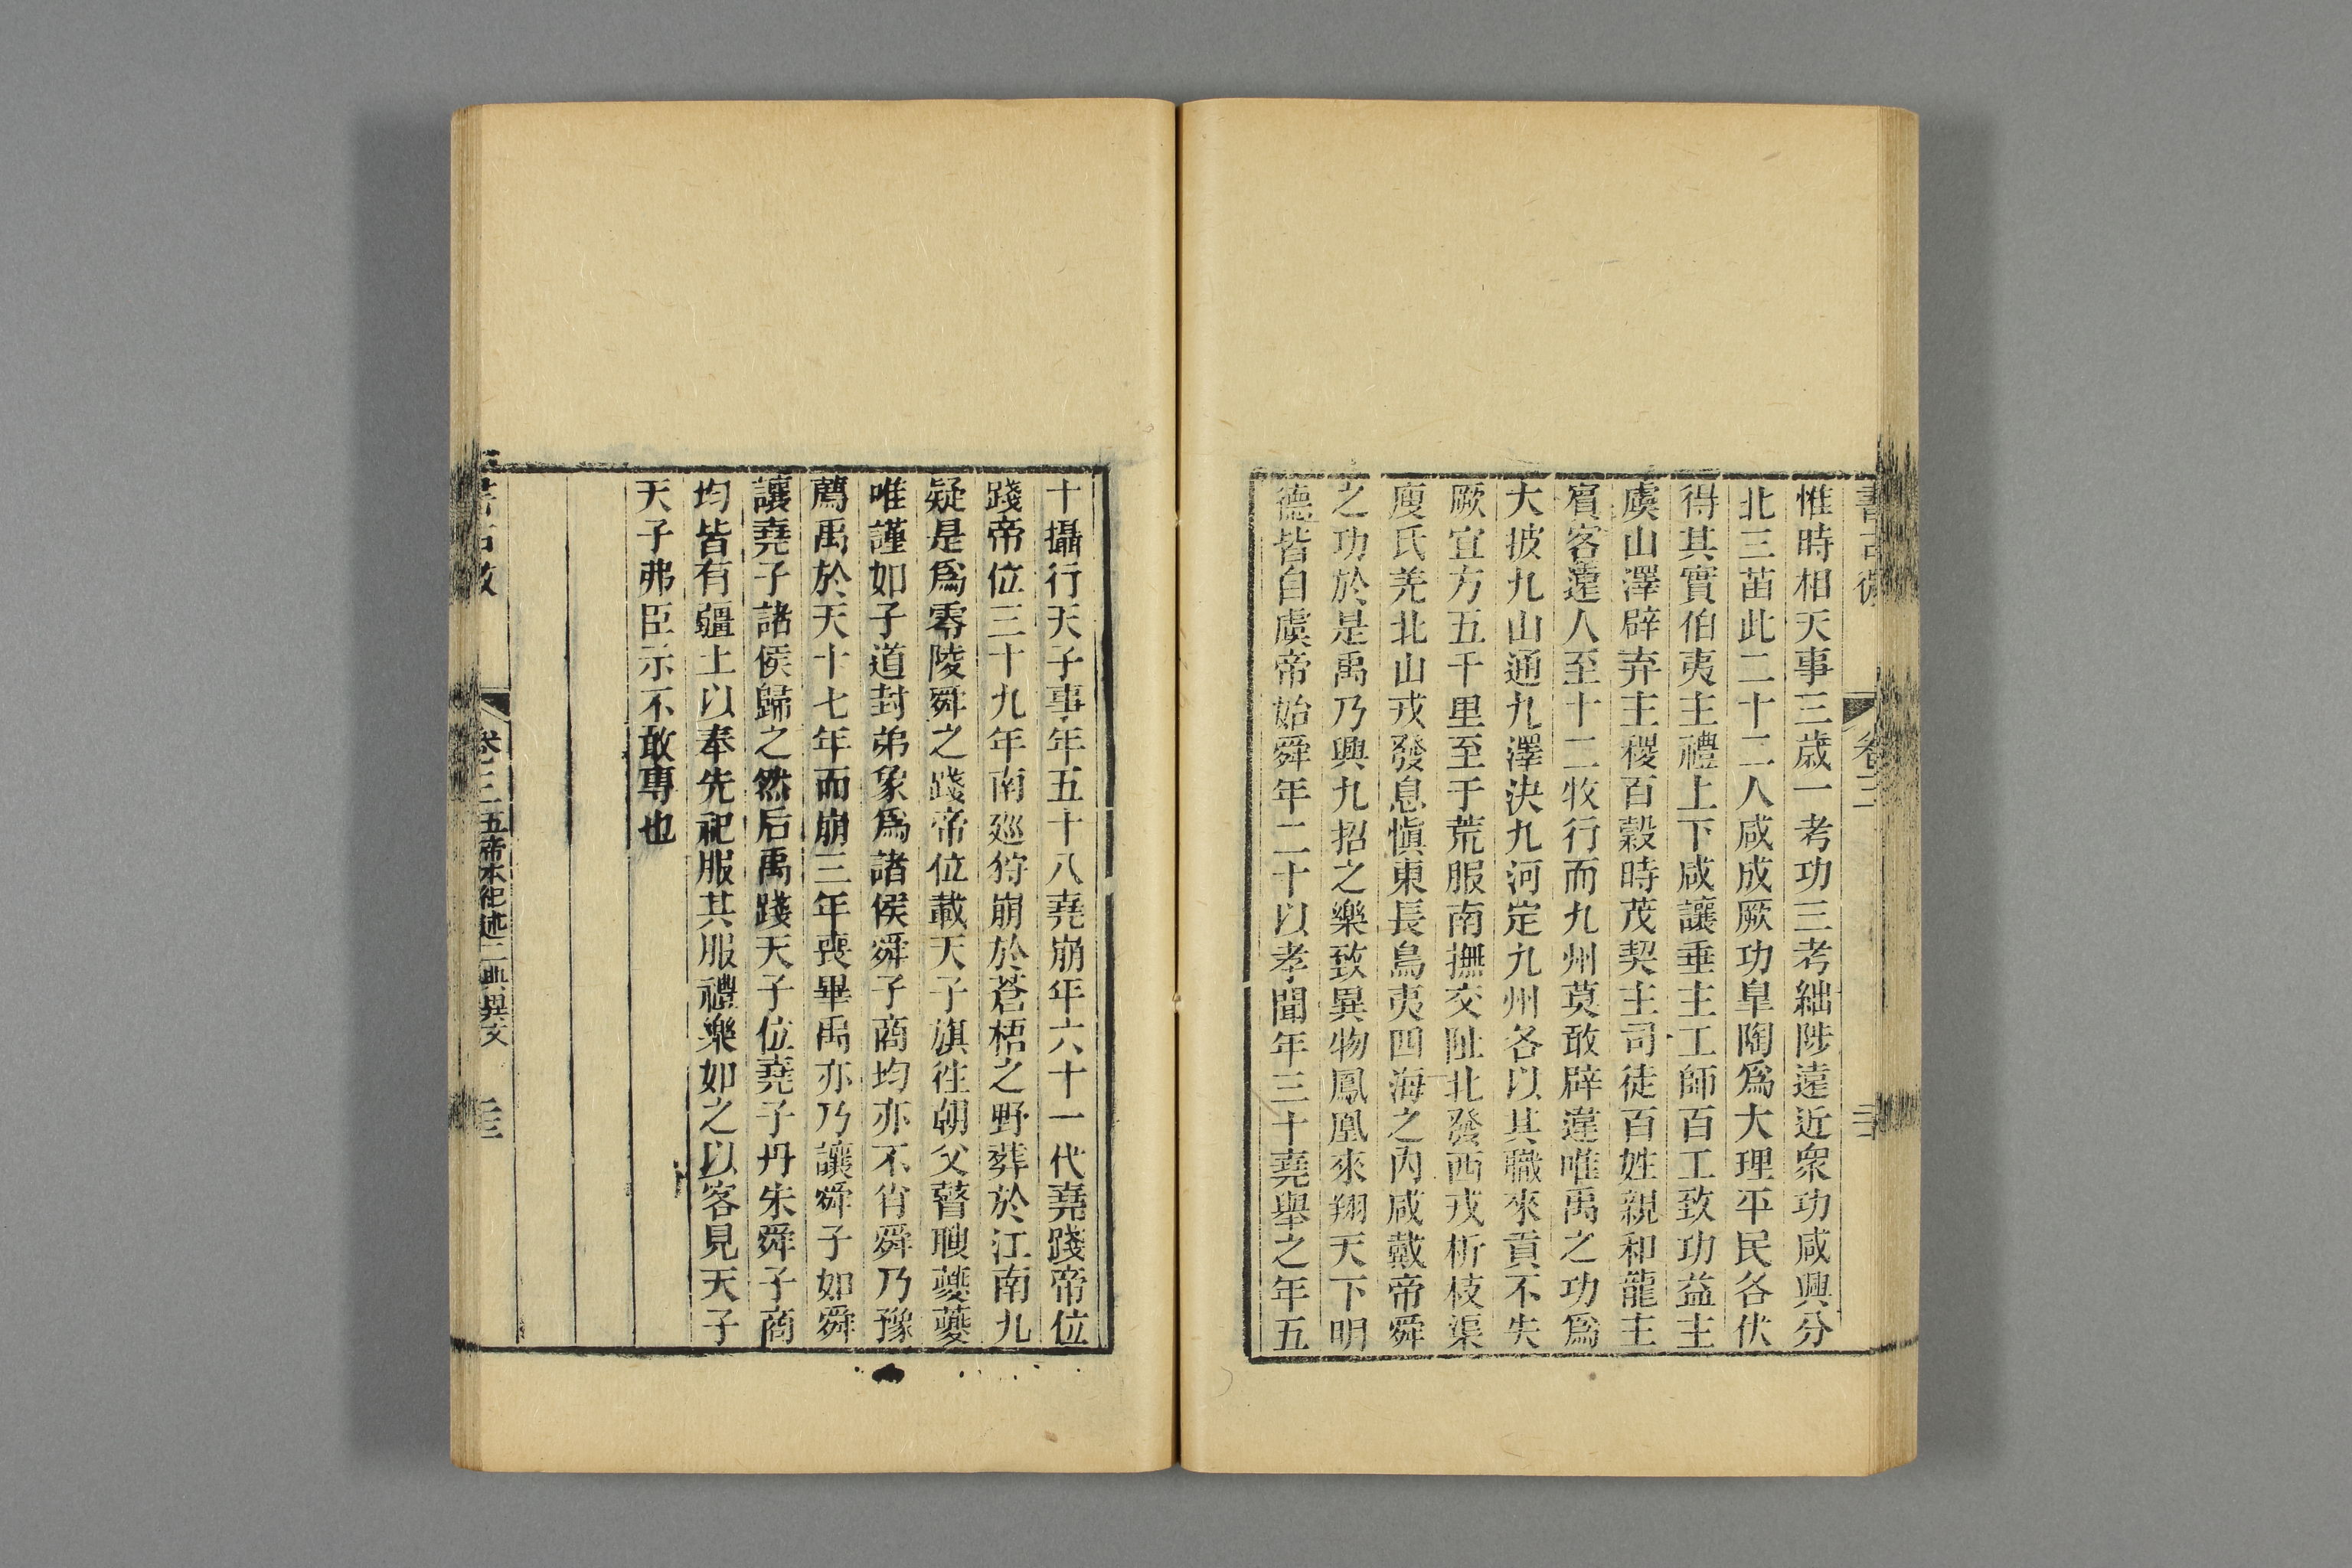 書古微
卷三
惟時相天事三歲一考功三考絀陟遠近衆功咸興分
北三苗此二十二人咸成厥功皐陶爲大理平民各伏
得其實伯夷主禮上下咸讓垂主工師百工致功益主
虞山澤辟弃主稷百穀時茂契主司徒百姓親和龍主
賓客遠人至十二牧行而九州莫敢辟違唯禹之功爲
大披九山通九澤決九河定九州各以其職來貢不失
厥宜方五千里至于荒服南撫交阯北發西戎析枝渠
廋氏羌北山戎發息愼東長鳥夷四海之內咸戴帝舜
之功於是禹乃興九招之樂致異物鳳凰來翔天下明
德皆自虞帝始舜年二十以孝聞年三十堯舉之年五
十攝行天子事年五十八堯崩年六十一代堯踐帝位
踐帝位三十九年南廵狩崩於蒼梧之野葬於江南九
疑是爲零陵舜之踐帝位載天子旗往朝父瞽瞍夔夔
唯謹如子道封弟象爲諸侯舜子商均亦不肖舜乃豫
薦禹於天十七年而崩三年喪畢禹亦乃讓舜子如舜
讓堯子諸侯歸之然后禹踐天子位堯子丹朱舜子商
均皆有疆土以奉先祀服其服禮樂如之以客見天子
天子弗臣示不敢專也
書古微
卷三五帝本紀述二典異文